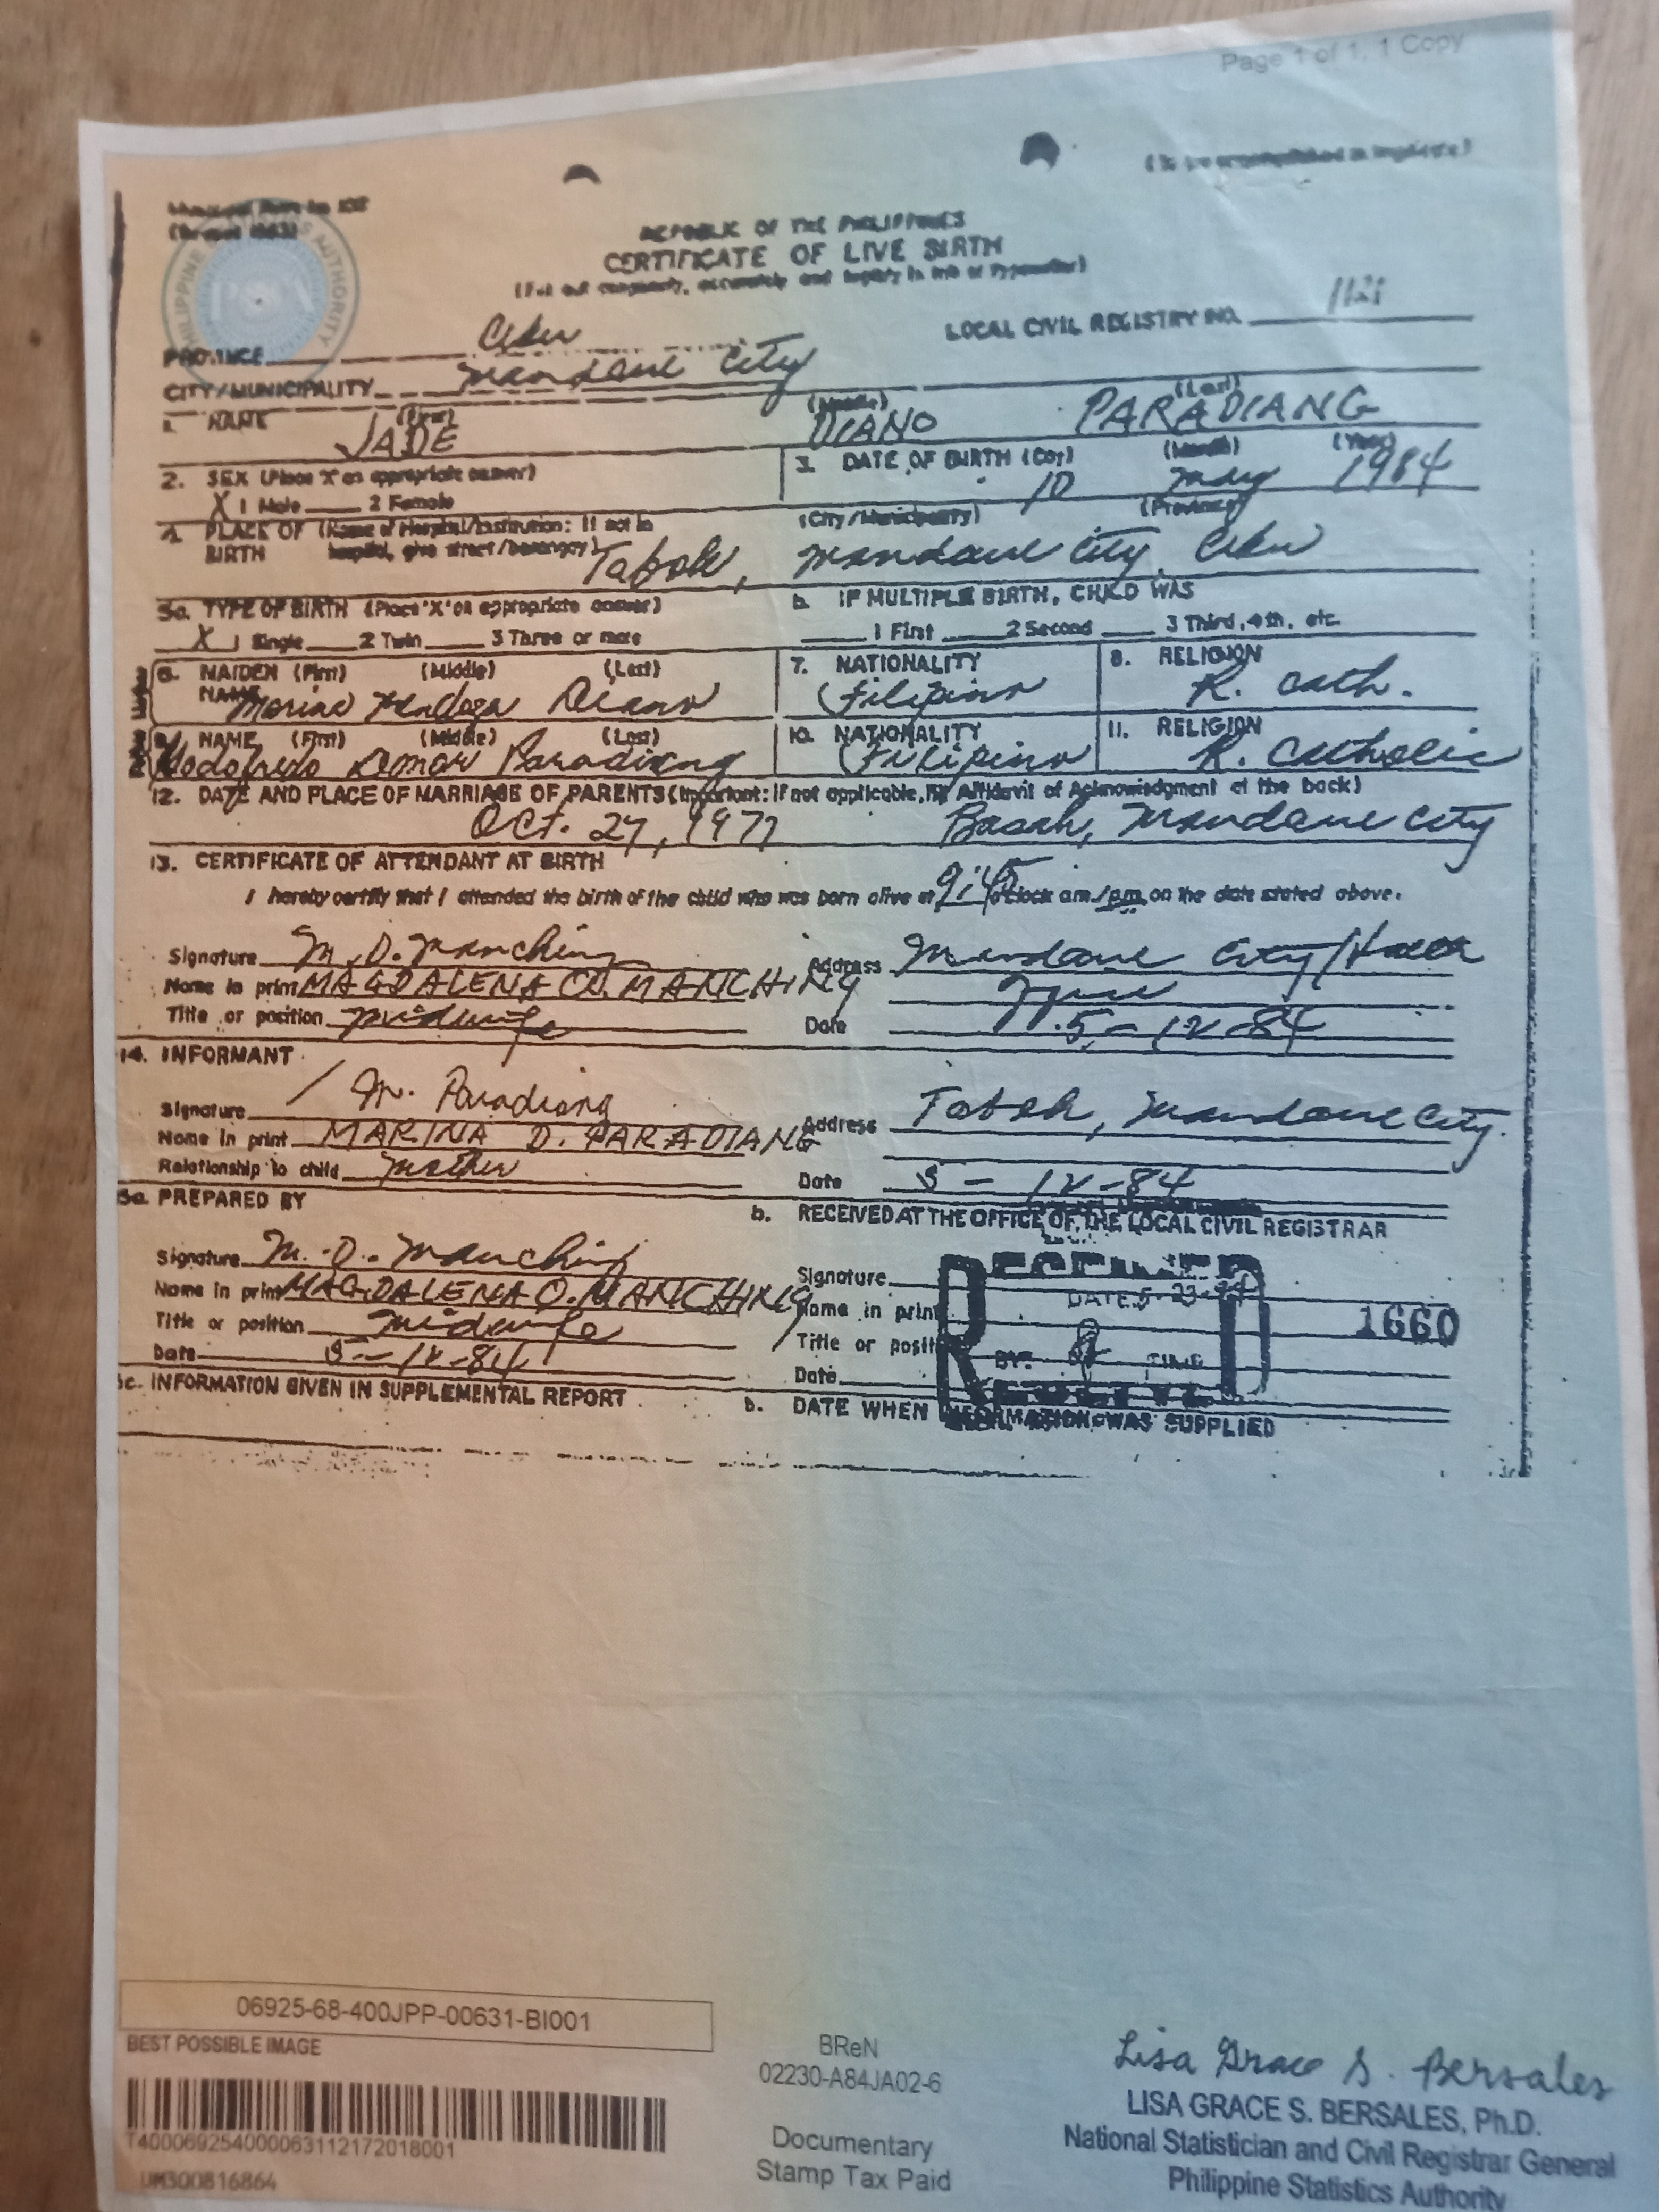 Page 1 of 1, 1 Copy
(To be accomplished in
Municipal Form No. 102
(Revised 1983)
REPUBLIC OF THE PHILIPPINES
CERTIFICATE OF LIVE BIRTH
(Fill out completely, accurately and legibly in ink or typewriter)
LOCAL CIVIL REGISTRY NO.
PROVINCE Cebu
CITY/MUNICIPALITY Mandaue City
1. NAME (First) (Middle) (Last)
JADE DIANO PARADIANG
2. SEX (Place 'X' on appropriate answer) 3. DATE OF BIRTH (Day) (Month) (Year)
X 1 Male 2 Female 10 May 1984
4. PLACE OF BIRTH (Name of Hospital/Institution: If not in hospital, give street/barangay) (City/Municipality) (Province)
Tabok, Mandaue City, Cebu
5a. TYPE OF BIRTH (Place 'X' on appropriate answer) b. IF MULTIPLE BIRTH, CHILD WAS
X 1 Single 2 Twin 3 Three or more 1 First 2 Second 3 Third, 4th, etc.
6. MAIDEN NAME (First) (Middle) (Last) 7. NATIONALITY 8. RELIGION
Marina Mendoza Diano Filipino R. Cath.
9. NAME (First) (Middle) (Last) 10. NATIONALITY 11. RELIGION
Godofredo Paradiang Filipino R. Catholic
12. DATE AND PLACE OF MARRIAGE OF PARENTS (Important: If not applicable, fill Affidavit of Acknowledgment at the back)
Oct. 27, 1977 Basak, Mandaue City
13. CERTIFICATE OF ATTENDANT AT BIRTH
I hereby certify that I attended the birth of the child who was born alive at 9:45 o'clock am/pm on the date stated above.
Signature M. D. Manching Address Mandaue City/Health
Name in print MAGDALENA O. MANCHING
Title or position Midwife Date 5-12-84
14. INFORMANT
Signature M. Paradiang Address Tabok, Mandaue City.
Name in print MARINA D. PARADIANG
Relationship to child Mother Date 5-12-84
5a. PREPARED BY b. RECEIVED AT THE OFFICE OF THE LOCAL CIVIL REGISTRAR
Signature M. O. Manching Signature
Name in print MAGDALENA O. MANCHING Name in print
Title or position Midwife Title or position
Date 5-12-84 Date
RECEIVED
DATE 5-23-84
BY: TIME
1660
5c. INFORMATION GIVEN IN SUPPLEMENTAL REPORT b. DATE WHEN INFORMATION WAS SUPPLIED
06925-68-400JPP-00631-BI001
BEST POSSIBLE IMAGE
T400069254000063112172018001
BReN
02230-A84JA02-6
Documentary
Stamp Tax Paid
Lisa Grace S. Bersales
LISA GRACE S. BERSALES, Ph.D.
National Statistician and Civil Registrar General
Philippine Statistics Authority